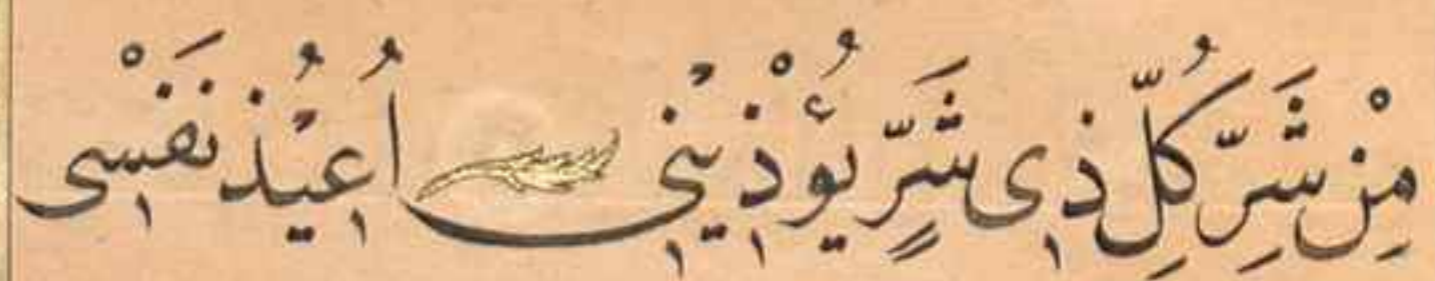 مِنْ شَرِّ كُلِّ ذِى شَرٍّ يُؤْذِينِى اُعِيذُ نَفْسِى